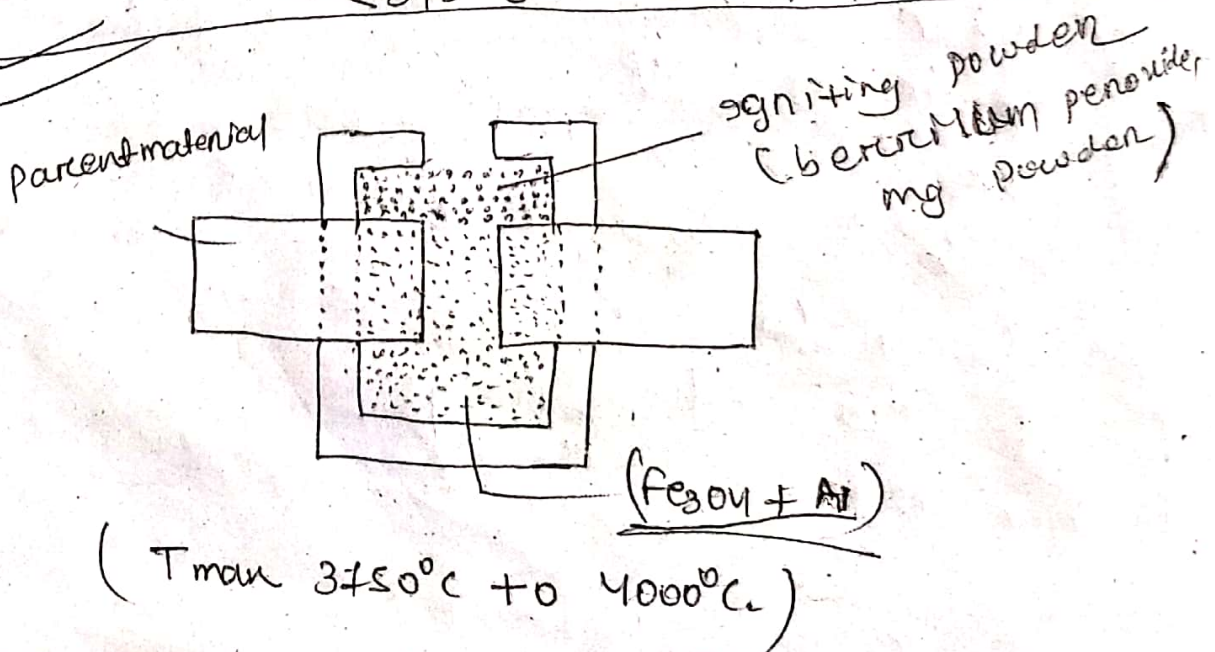 parent material
igniting powder
(berrillium peroxide,
mg powder)
(Fe3O4 + Al)
(Tmax 3750°C to 4000°C.)